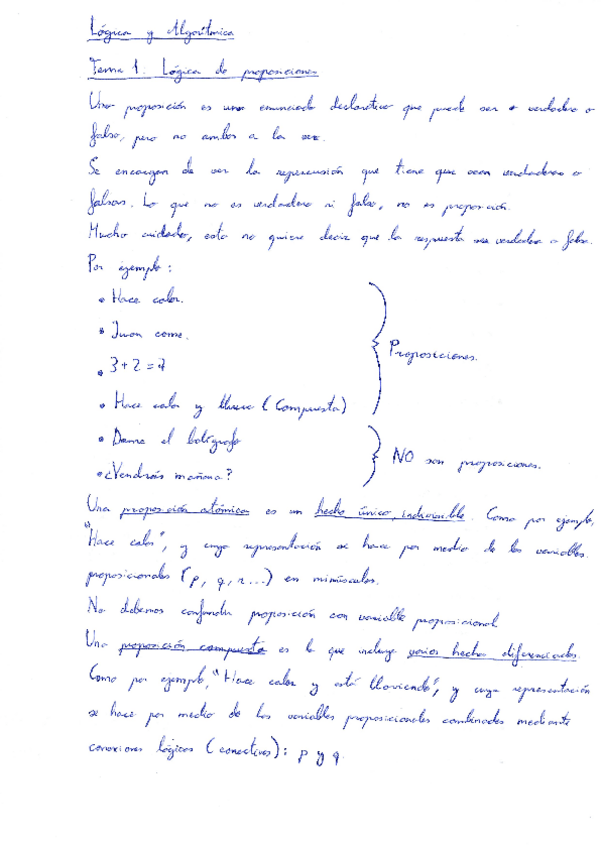 Lógica y Algorítmica
Tema 1. Lógica de proposiciones
Una proposición es una enunciado declarativo que puede ser o verdadero o
falso, pero no ambos a la vez.
Se encargan de ver la repercusión que tiene que sean verdaderas o
falsas. Lo que no es verdadero ni falso, no es proposición.
Mucho cuidado, esto no quiere decir que la respuesta sea verdadera o falsa.
Por ejemplo:
• Hace calor.
• Juan come.
• 3 + 2 = 7
Proposiciones.
• Hace calor y llueve (Compuesta)
• Dame el bolígrafo
• ¿Vendrás mañana?
NO son proposiciones.
Una proposición atómica es un hecho único, indivisible. Como por ejemplo,
"Hace calor", y cuya representación se hace por medio de las variables
proposicionales (p, q, r...) en minúsculas.
No debemos confundir proposición con variable proposicional
Una proposición compuesta es la que incluye varios hechos diferenciados.
Como por ejemplo, "Hace calor y está lloviendo", y cuya representación
se hace por medio de las variables proposicionales combinadas mediante
conexiones lógicas (conectivas): p y q.